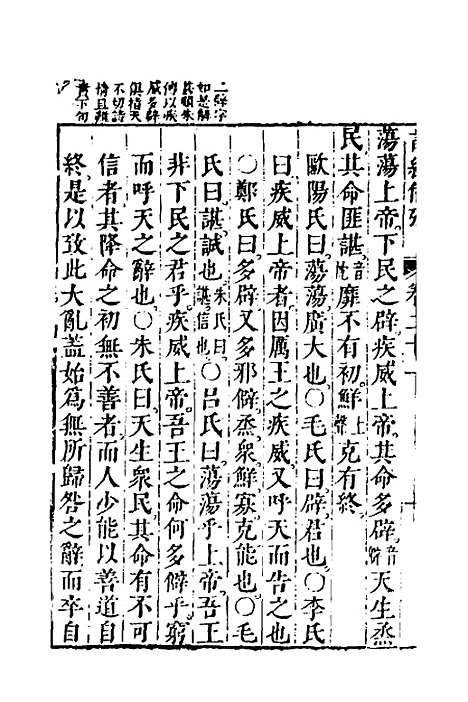 二辟字
如是解
甚順朱
傳以疾
威多辟
俱指天
不切詩
情且難
貫下句
蕩蕩上帝。下民之辟。疾威上帝。其命多辟。音僻天生烝
民。其命匪諶。音忱靡不有初。鮮上聲克有終。
歐陽氏曰。蕩蕩。廣大也。○毛氏曰。辟。君也。○李氏
曰。疾威上帝者。因厲王之疾威。又呼天而告之也。
○鄭氏曰。多辟。又多邪僻。烝。眾。鮮。寡。克。能也。○毛
氏曰。諶。誠也。朱氏曰。諶。信也。○呂氏曰。蕩蕩乎上帝。吾王
非下民之君乎。疾威上帝。吾王之命何多僻乎。窮
而呼天之辭也。○朱氏曰。天生眾民。其命有不可
信者。其降命之初。無不善者。而人少能以善道自
終。是以致此大亂。蓋始為無所歸咎之辭。而卒自